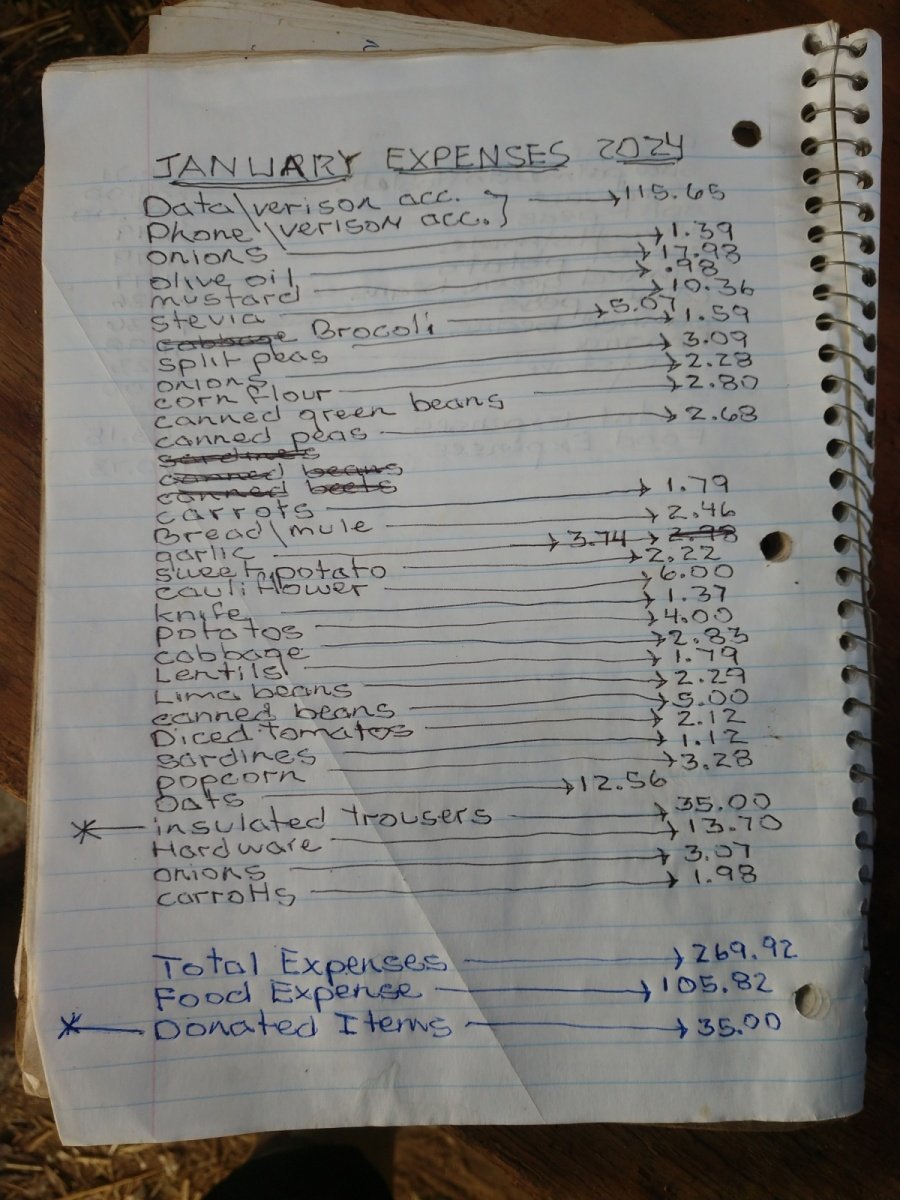 JANUARY EXPENSES 2024
Data\verison acc. } → 115.65
Phone\verison acc. }
onions → 1.39
olive oil → 17.98
mustard → .98
stevia → 10.36
cabbage Brocoli → 5.07
split peas → 1.59
onions → 3.09
corn flour → 2.28
canned green beans → 2.80
canned peas → 2.68
sardines
canned beans
canned beets
carrots → 1.79
Bread\mule → 2.46
garlic → 3.74 → 2.98
sweet potato → 2.22
cauliflower → 6.00
knife → 1.37
potatos → 4.00
cabbage → 2.83
Lentils → 1.79
Lima beans → 2.29
canned beans → 5.00
Diced tomatos → 2.12
sardines → 1.12
popcorn → 3.28
oats → 12.56
* insulated trousers → 35.00
Hardware → 13.70
onions → 3.07
carrots → 1.98
Total Expenses → 269.92
Food Expense → 105.82
* Donated Items → 35.00